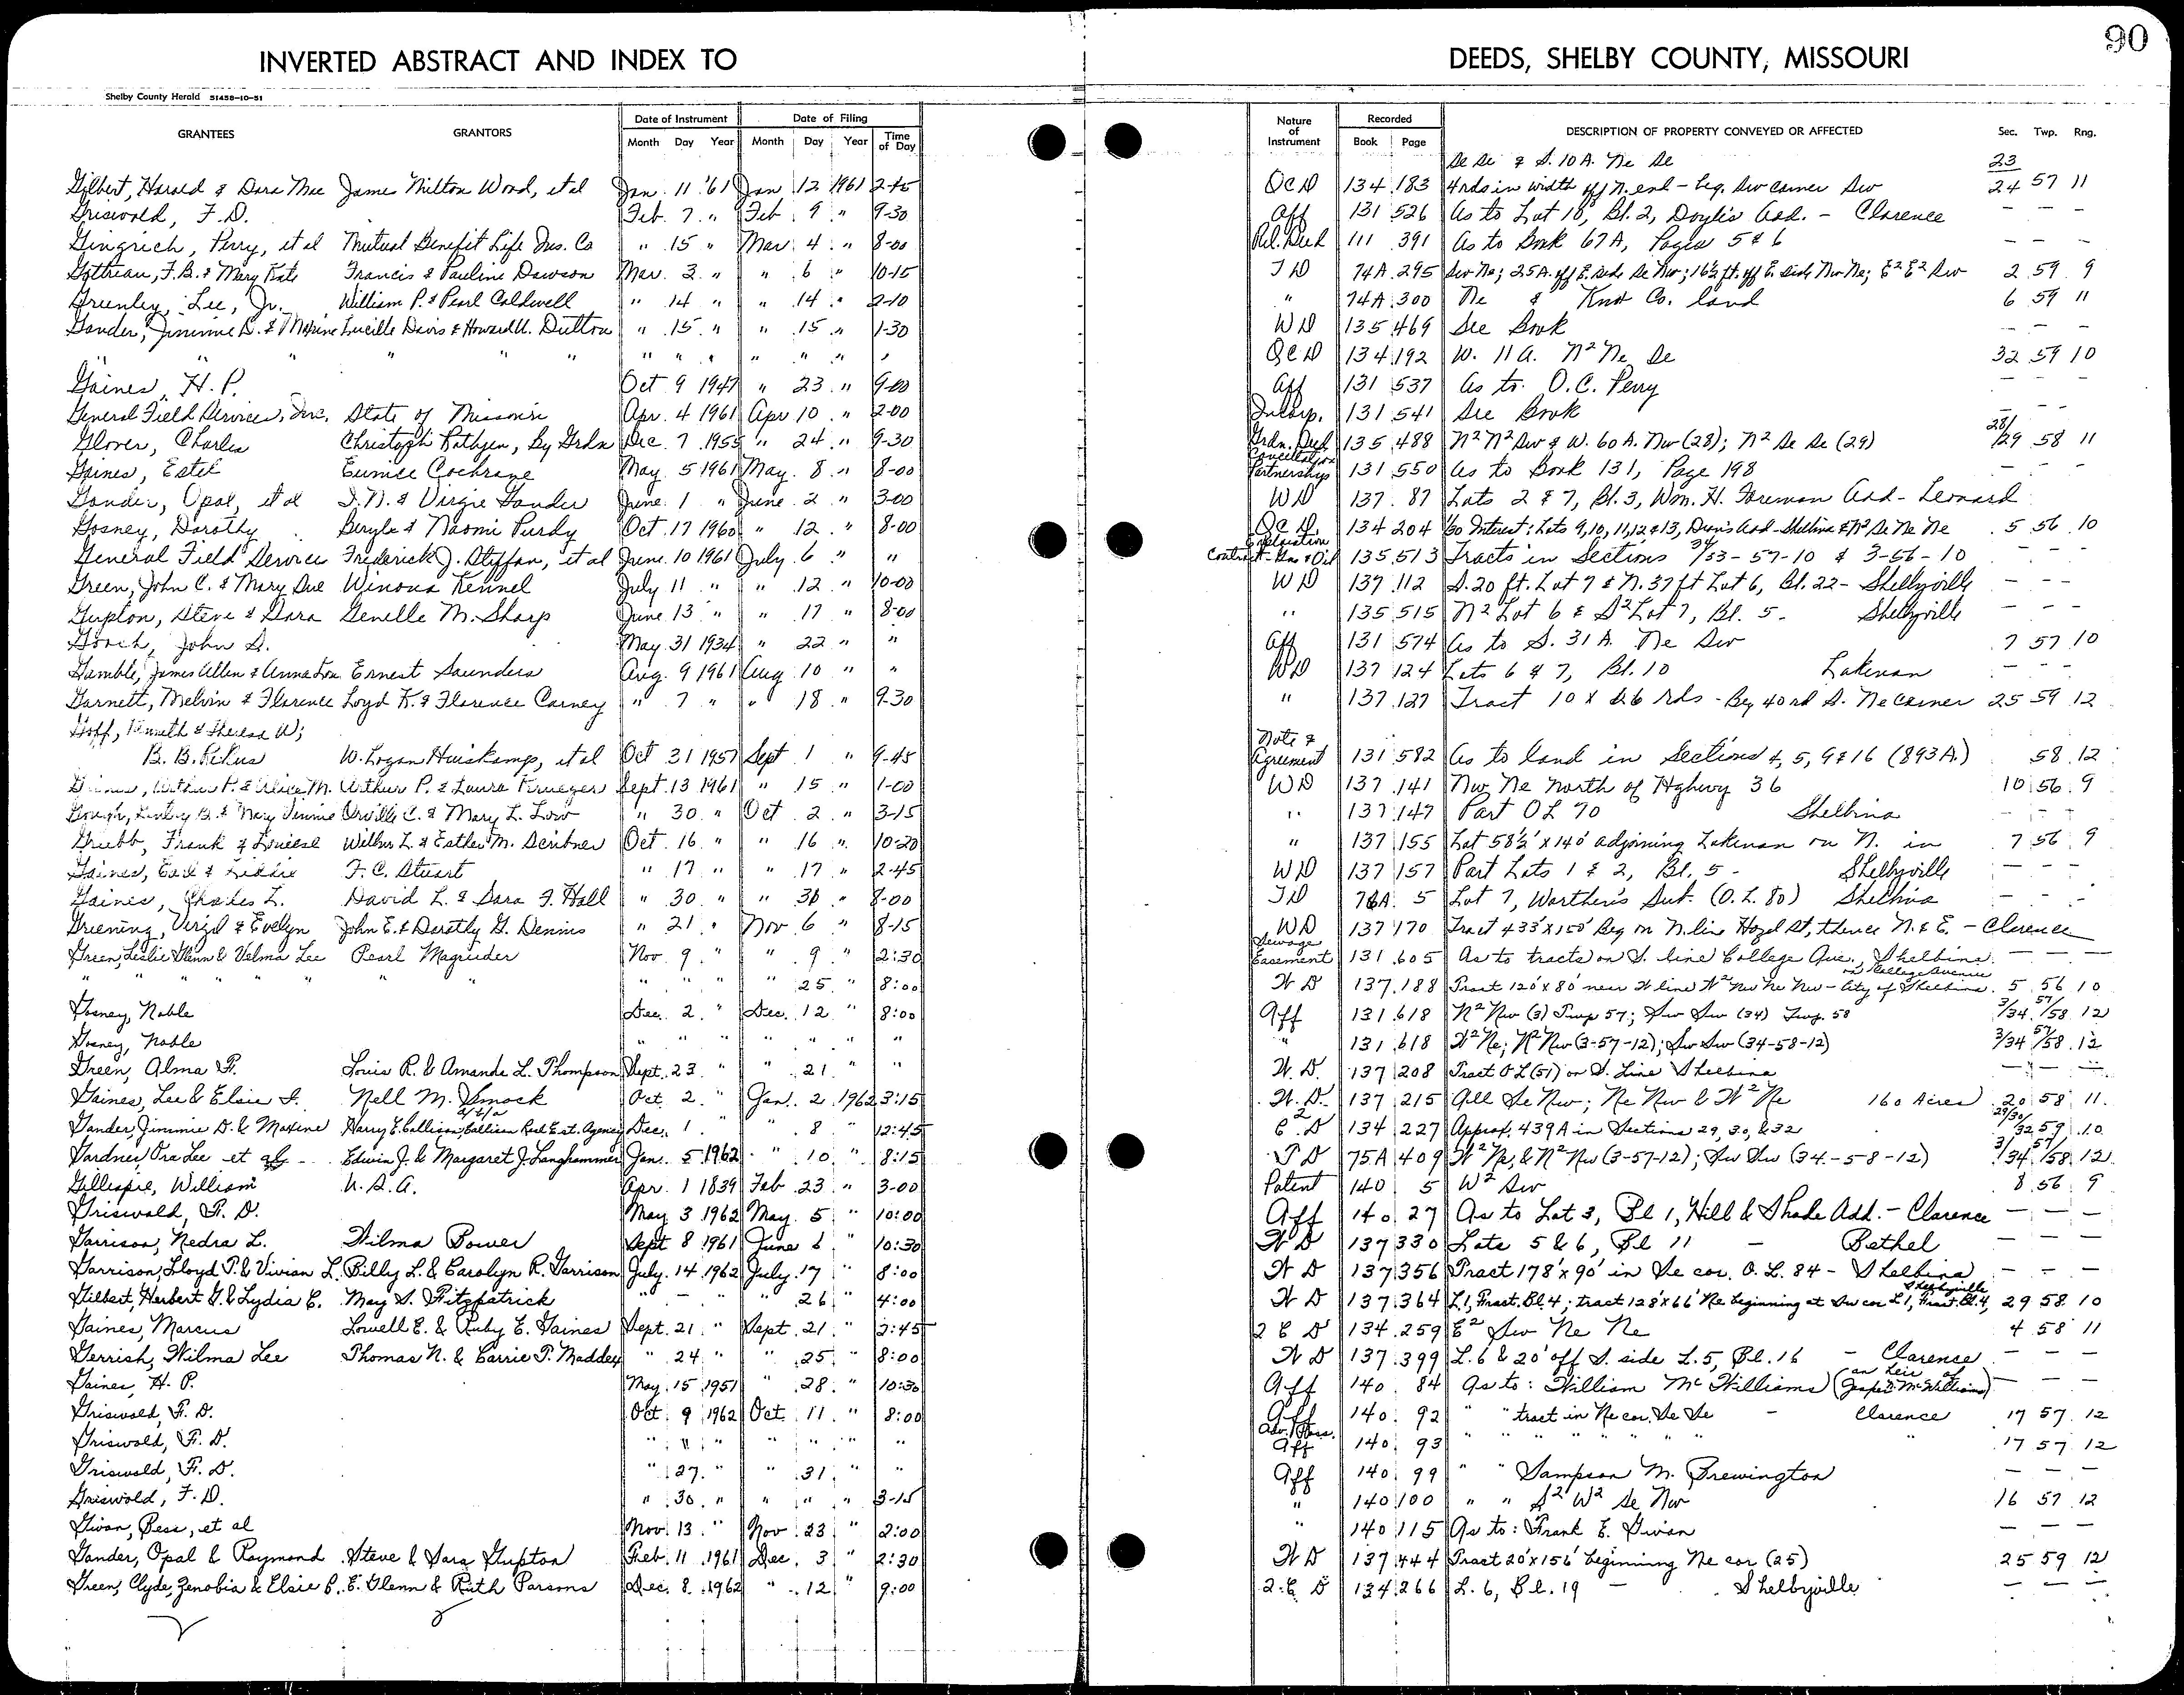 90
INVERTED ABSTRACT AND INDEX TO DEEDS, SHELBY COUNTY, MISSOURI
Shelby County Herald 51458-10-51
GRANTEES GRANTORS Date of Instrument Month Day Year Date of Filing Month Day Year Time of Day Nature of Instrument Recorded Book Page DESCRIPTION OF PROPERTY CONVEYED OR AFFECTED Sec. Twp. Rng.
Se Se & S. 10 A. Ne Se 23
Gilbert, Harold & Dora Mae James Milton Wood, et al Jan. 11 '61 Jan 12 1961 2-45 Q C D 134 183 4 rds in width off N. end - beg. Sw corner Sw 24 57 11
Griswold, F.D. Feb. 7 " Feb. 9 " 9-30 Aff 131 526 As to Lot 10, Bl. 2, Doyle's Add. - Clarence — — —
Gingrich, Perry, et al Mutual Benefit Life Ins. Co " 15 " Mar. 4 " 8-00 Rel. Deed 111 391 As to Book 67A, Pages 5 & 6 — — —
Gottman, F.B. & Mary Kate Francis & Pauline Dawson Mar. 3 " " 6 " 10-15 T D 74A 295 Sw Ne; 25A. off E. side Se Nw; 16½ ft. off E. side Nw Ne; E² E² Sw 2 59 9
Greenley, Lee, Jr. William P. & Pearl Caldwell " 14 " " 14 " 2-10 " 74A 300 Ne & Knox Co. land 6 59 11
Gander, Jimmie D. & Maxine Lucille Davis & Howard U. Dutton " 15 " " 15 " 1-30 W D 135 469 See Book — — —
" " " " " " " " " " " " " Q C D 134 192 W. 11 A. N² Ne Se 32 59 10
Gaines, H. P. Oct 9 1947 " 23 " 9-00 Aff 131 537 As to O.C. Perry — — —
General Field Services, Inc. State of Missouri Apr. 4 1961 Apr 10 " 2-00 131 541 See Book — — —
Glover, Charles Christoph Rathjen, By Grdn Dec. 7 1955 " 24 " 9-30 Grdn. Deed 135 488 N² N² Sw & W. 60 A. Nw (28); N² Se Se (29) 28/29 58 11
Gaines, Estel Eunice Cochrane May 5 1961 May 8 " 8-00 Cancellation Partnership 131 550 As to Book 131, Page 198 — — —
Gander, Opal, et al I.N. & Virgie Gander June 1 " June 2 " 3-00 W D 137 87 Lots 2 & 7, Bl. 3, Wm. H. Foreman Add - Leonard
Gosney, Dorothy Beryle & Naomi Purdy Oct 17 1960 " 12 " 8-00 Q C D. 134 204 1/30 Interest: Lots 9,10,11,12 & 13, Dean's Add - Shelbina & N² Se Ne Ne 5 56 10
General Field Service Frederick J. Steffan, et al June 10 1961 July 6 " " Exploration Contract - Gas & Oil 135 513 Tracts in Sections 34/33-57-10 & 3-56-10 — — —
Green, John C. & Mary Sue Winona Kennel July 11 " " 12 " 10-00 W D 137 112 S. 20 ft. Lot 7 & N. 37 ft Lot 6, Bl. 22 - Shelbyville — — —
Gupton, Steve & Sara Genelle M. Sharp June 13 " " 17 " 8-00 " 135 515 N² Lot 6 & S² Lot 7, Bl. 5 - Shelbyville — — —
Gooch, John S. May 31 1934 " 22 " " Aff 131 574 As to S. 31 A. Ne Sw 7 57 10
Gamble, James Allen & Anna Lou Ernest Saunders Aug. 9 1961 Aug 10 " " W D 137 124 Lots 6 & 7, Bl. 10 Lakenan — — —
Garnett, Melvin & Florence Loyd K. & Florence Carney " 7 " " 18 " 9-30 " 137 127 Tract 10 x 26 rds - Beg 40 rd S. Ne Corner 25 59 12
Goff, Kenneth & Theresa W;
B. B. W. Logan Huiskamp, et al Oct 31 1957 Sept 1 " 9-45 Note & Agreement 131 582 As to land in Sections 4, 5, 9 & 16 (893 A.) 58 12
Arthur P. & Alice M. Arthur P. & Laura Krueger Sept. 13 1961 " 15 " 1-00 W D 137 141 Nw Ne North of Highway 36 10 56 9
Gough, & Mary Jennie Orville C. & Mary L. Low " 30 " Oct 2 " 3-15 " 137 147 Part O L 70 Shelbina — — —
Grubb, Frank & Louiese Wilbur L. & Esther M. Scribner Oct. 16 " " 16 " 10:20 " 137 155 Lot 58½' x 140' adjoining Lakenan on N. in 7 56 9
Gaines, Earl & Liddie F. C. Stuart " 17 " " 17 " 2-45 W D 137 157 Part Lots 1 & 2, Bl. 5 - Shelbyville — — —
Gaines, Charles L. David L. & Sara F. Hall " 30 " " 30 " 8-00 T D 76A 5 Lot 7, Worthen's Sub. (O. L. 80) Shelbina — — —
Greening, Virgil & Evelyn John E. & Dorothy G. Dennis " 21 " Nov 6 " 8-15 W D 137 170 Tract 433' x 150' Beg on N. line Hazel St, thence N. & E. - Clarence
Green, Leslie Glenn & Velma Lee Pearl Magruder Nov. 9 " " 9 " 2:30 Sewage Easement 131 605 As to tracts on S. line College Ave., Shelbina — — —
" " " " " " " " " " 25 " 8:00 W D 137 188 Tract 120' x 80' near W line W² Nw Ne Nw - City of Shelbina on College Avenue 5 56 10
Gosney, Noble Dec. 2 " Dec. 12 " 8:00 Aff 131 618 N² Nw (3) Twp 57; Sw Sw (34) Twp. 58 3/34 57/58 12
Gosney, Noble " " " " " " " " 131 618 W² Ne; N² Nw (3-57-12); Sw Sw (34-58-12) 3/34 57/58 12
Green, Alma F. Louis R. & Amanda L. Thompson Sept. 23 " " 21 " " W. D. 137 208 Tract O L (51) on S. Line Shelbina — — —
Gaines, Lee & Elsie I. Nell M. Smock Oct. 2 " Jan. 2 1962 3:15 W. D. 137 215 All Se Nw; Ne Nw & W² Ne 160 Acres 20 58 11
Gander, Jimmie D. & Maxine Harry E. Callison, d/b/a Callison Real Est. Agency Dec. 1 " " 8 " 12:45 2 C D 134 227 Approx. 439 A in Sections 29, 30, & 32 29/30/32 59 10
Gardner, Ora Lee et al - Edwin J. & Margaret J. Langhammer Jan. 5 1962 " 10 " 8:15 T D 75A 409 W² Ne, & N² Nw (3-57-12); Sw Sw (34-58-12) 3/34 57/58 12
Gillespie, William U. S. A. Apr. 1 1839 Feb 23 " 3-00 Patent 140 5 W² Sw 8 56 9
Griswold, F. D. May 3 1962 May 5 " 10:00 Aff 140 27 As to Lot 3, Bl 1, Hill & Shade Add. - Clarence — — —
Garrison, Nedra L. Wilma Bower Sept 8 1961 June 6 " 10:30 W D 137 330 Lots 5 & 6, Bl 11 - Bethel — — —
Garrison, Lloyd P. & Vivian L. Billy L. & Carolyn R. Garrison July 14 1962 July 17 " 8:00 W D 137 356 Tract 178' x 90' in Se cor. O. L. 84 - Shelbina — — —
Gilbert, Herbert G. & Lydia E. May S. Fitzpatrick " — " " 26 " 4:00 W D 137 364 L 1, Fract. Bl 4; tract 128' x 66' Ne beginning at Sw cor L 1, Fract. Bl. 4, Shelbyville 29 58 10
Gaines, Marcus Lowell E. & Ruby E. Gaines Sept. 21 " Sept. 21 " 2:45 2 C D 134 259 E² Sw Ne Ne 4 58 11
Gerrish, Wilma Lee Thomas N. & Carrie P. Maddey " 24 " " 25 " 8:00 W D 137 399 L. 6 & 20' off S. side L. 5, Bl. 16 - Clarence — — —
Gaines, H. P. May 15 1951 " 28 " 10:30 Aff 140 84 As to: William McWilliams (an heir of McWilliams) — — —
Griswold, F. D. Oct. 9 1962 Oct. 11 " 8:00 Aff 140 92 " " tract in Ne cor. Se Se - Clarence 17 57 12
Griswold, F. D. " 11 " " " " " Adv. Poss. Aff 140 93 " " " " " " " " 17 57 12
Griswold, F. D. " 27 " " 31 " " Aff 140 99 " " Sampson M. Brewington — — —
Griswold, F. D. " 30 " " " " 3-15 " 140 100 " " S² W² Se Nw 16 57 12
Givan, Bess, et al Nov. 13 " Nov. 23 " 2:00 " 140 115 As to: Frank E. Givan — — —
Gander, Opal & Raymond Steve & Sara Gupton Feb. 11 1961 Dec. 3 " 2:30 W D 137 444 Tract 20' x 156' beginning Ne cor (25) 25 59 12
Green, Clyde, Zenobia & Elsie B. E. Glenn & Ruth Parsons Dec. 8 1962 " 12 " 9:00 2 C D 134 266 L. 6, Bl. 19 - Shelbyville — — —